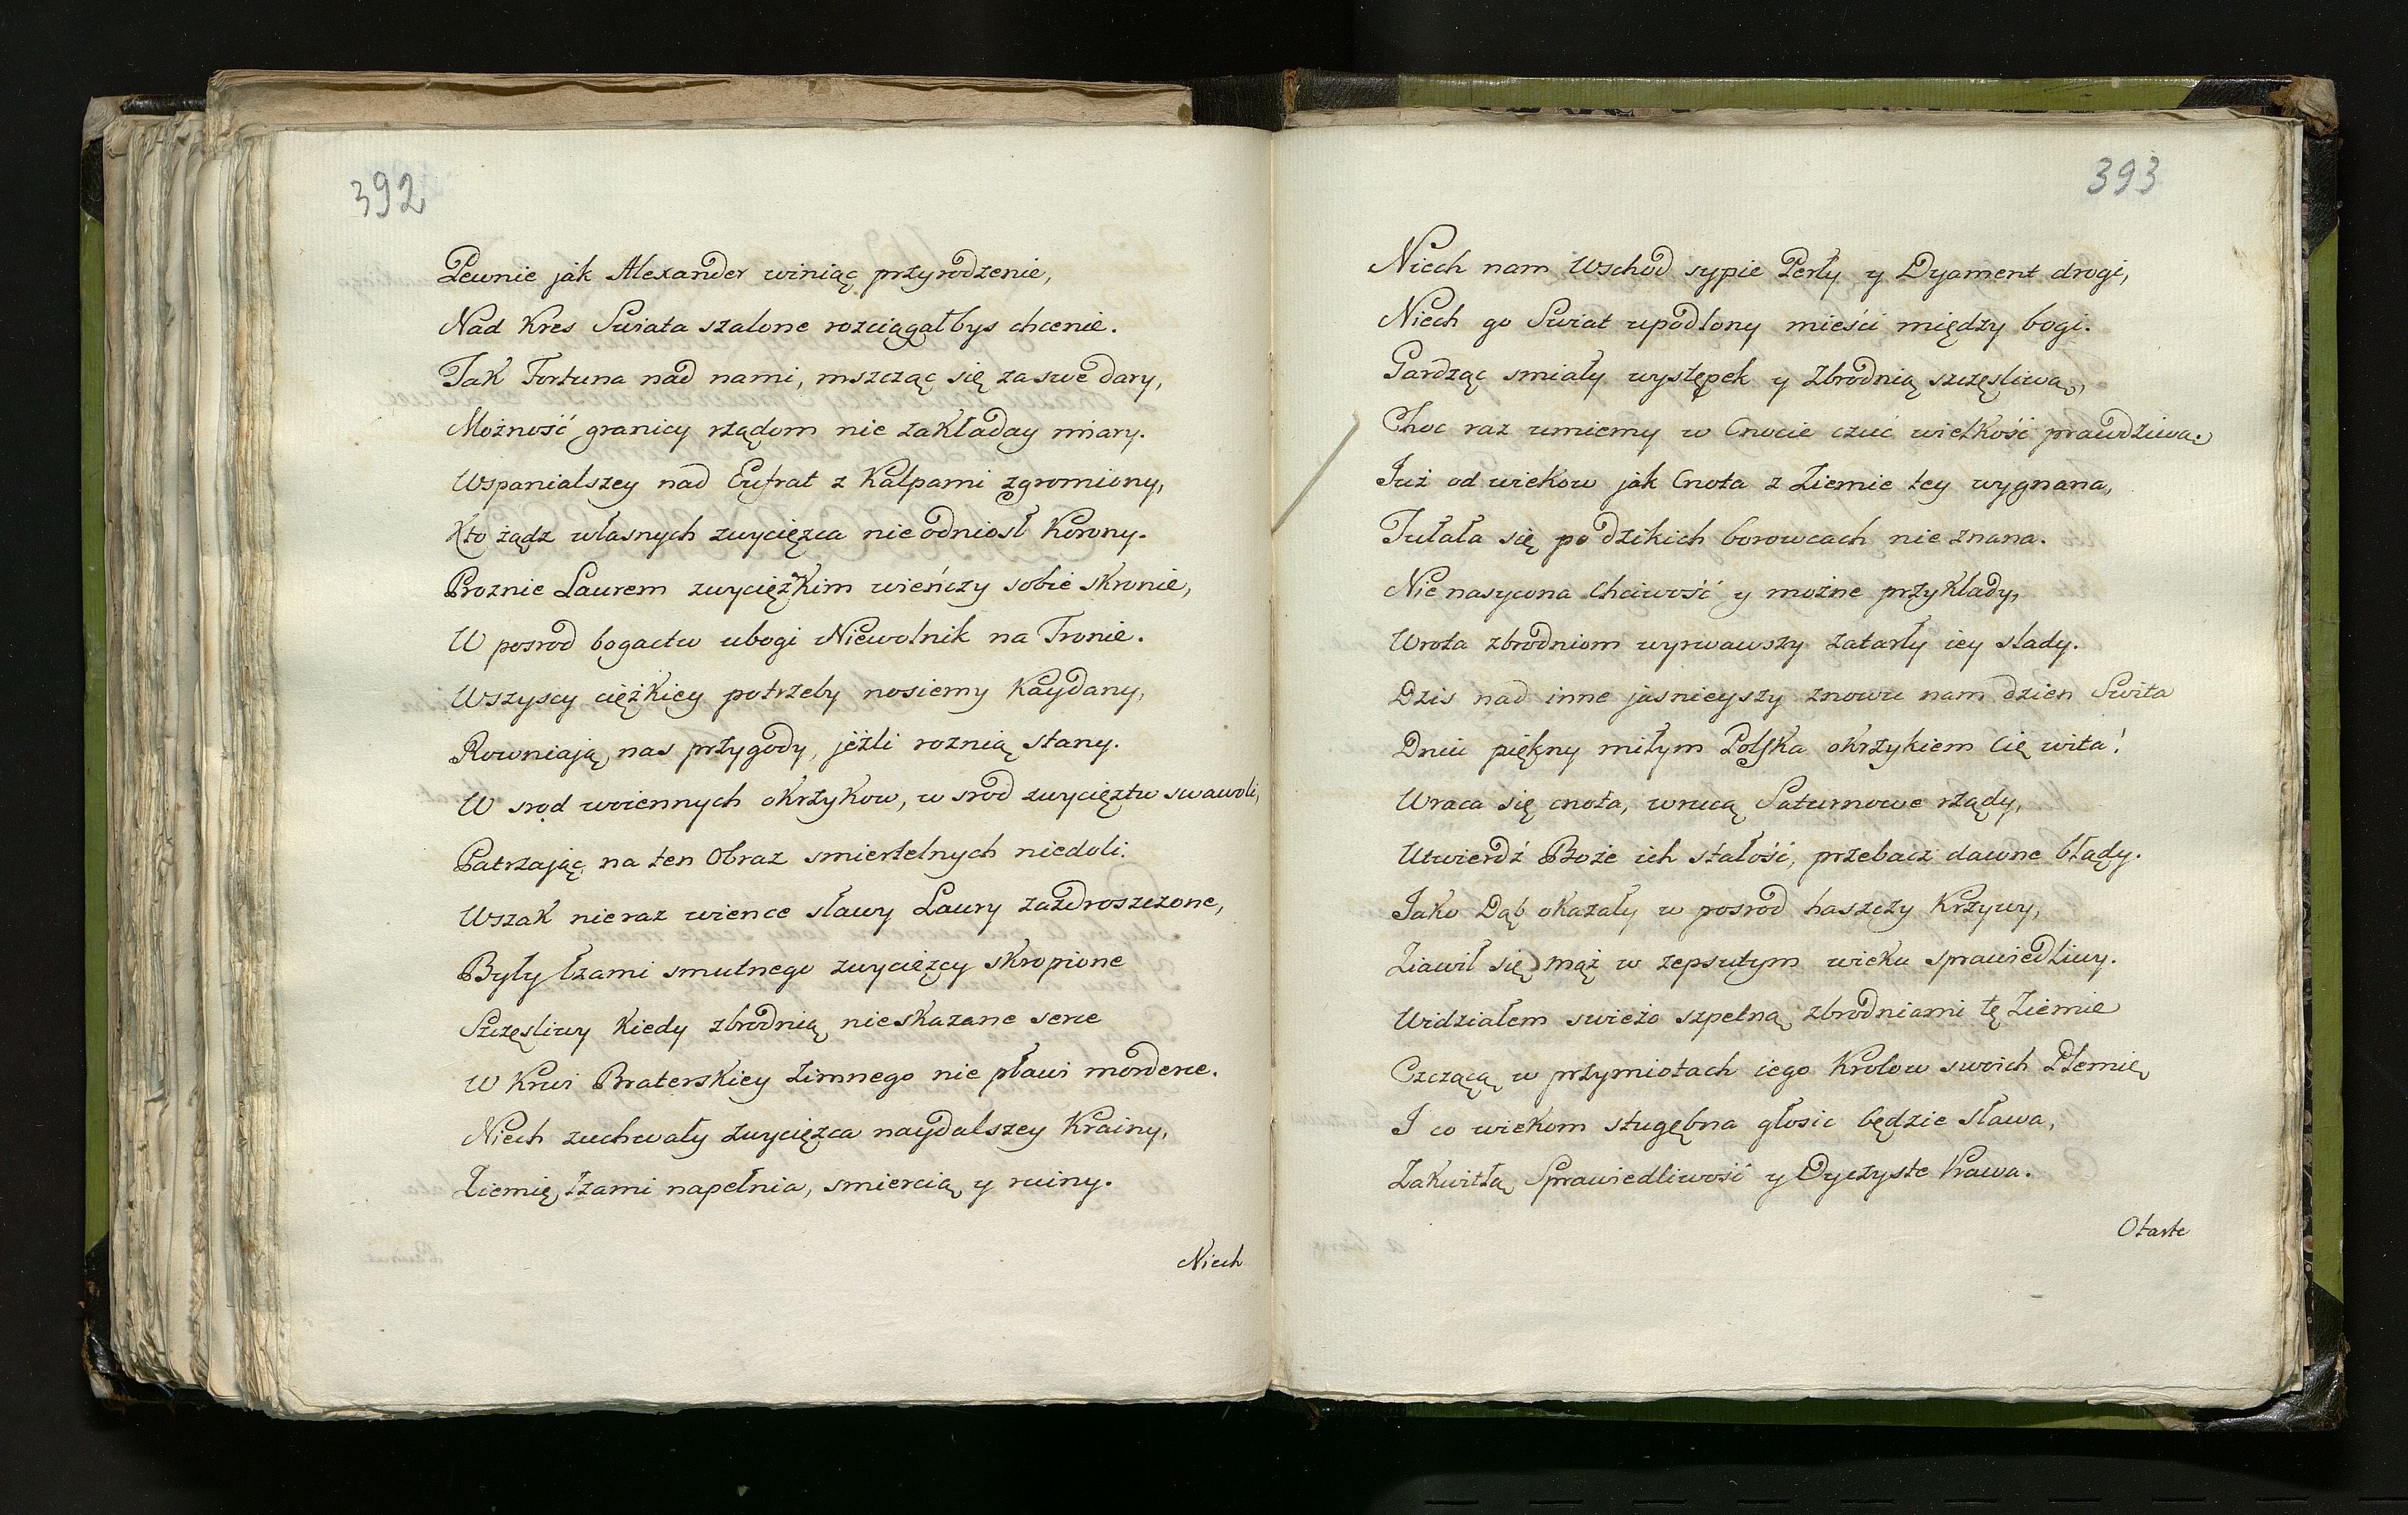 392
Pewnie jak Alexander winiąc przyrodzenie,
Nad Kres Swiata szalone rozciągał bys chcenie.
Tak Fortuna nad nami, mszcząc się za swe dary,
Możność granicy rządom nie zakładay miary.
Wspanialszey nad Eufrat z Kalpami zgromiony,
Kto rządz własnych zwycięzca nie odniosł Korony.
Proznie Laurem zwycięzkim wieńczy sobie skronie,
W posrod bogactw ubogi Niewolnik na Tronie.
Wszyscy ciężkiey potrzeby nosiemy Kaydany,
Rowniają nas przygody, jeżli roznią stany.
W srod woiennych okrzykow, w srod zwycięztw swawoli,
Patrzając na ten Obraz smiertelnych niedoli.
Wszak nie raz wience sławy Laury zazdroszczone,
Były łzami smutnego zwycięzcy skropione
Szczęsliwy Kiedy zbrodnią nieskazane serce
W Krwi Braterskiey zimnego nie pławi morderce.
Niech zuchwały zwycięzca naydalszey Krainy,
Ziemię łzami napełnia, smiercią y ruiny.
Niech
393
Niech nam Wschod sypie Perły y Dyament drogi,
Niech go Swiat upodlony mieści między bogi.
Gardząc smiały występek y Zbrodnią szczęsliwą,
Choc raz umiemy w Cnocie czuć wielkość prawdziwą.
Już od wiekow jak Cnota z Ziemie tey wygnana,
Tułała się po dzikich borowcach nie znana.
Nie nasycona Chciwość y możne przykłady,
Wrota zbrodniom wyrwawszy zatarły iey slady.
Dzis nad inne jasnieyszy znowu nam dzien Swita
Dniu piękny miłym Polska okrzykiem Cię wita!
Wraca się cnota, wrucą Saturnowe rządy,
Utwierdź Boże ich stałość, przebacz dawne błądy.
Jako Dąb okazały w posrod haszczy Krzywy,
Ziawił się mąż w zepsutym wieku sprawiedliwy.
Widziałem swieżo szpetną zbrodniami tę Ziemie
Czczącą w przymiotach iego Krolow swoich Plemię
I co wiekom stugębna głosic będzie sława,
Zakwitłą Sprawiedliwość y Oyczyste Prawa.
Otarte